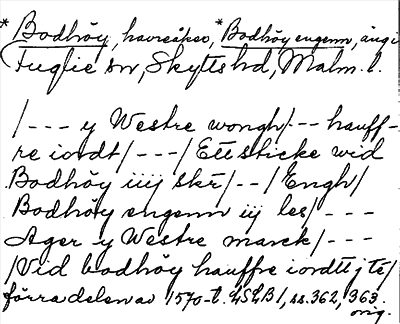 *Bodhöy, havreåker, *Bodhöy engenn, äng i
Fuglie sn, Skytts hd, Malm. l.
/--- y Westre wongh/-- hauff-
re iordt/---/Ett sticke wid
Bodhöy iiij skr/--/Engh/
Bodhöy engenn iij les/---
Ager y Westre marck/---
/Vid bodhöy hauffre iordt j te/
förra delen av 1570-t. LSLB/, ss. 362, 363.
orig.